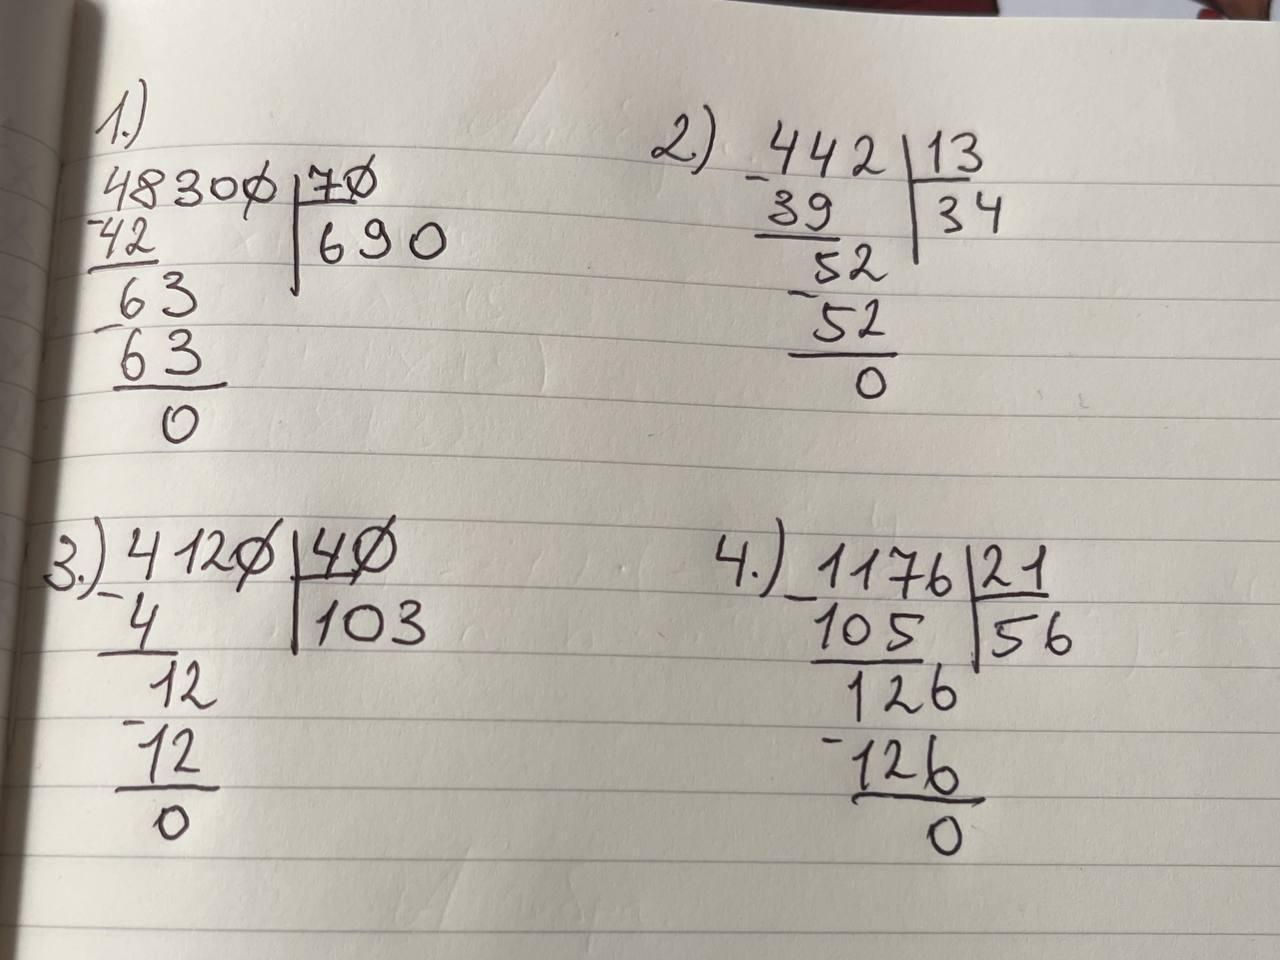 1.)
48300 | 70
-42 | 690
63
-63
0
2.) 442 | 13
-39 | 34
52
-52
0
3.) 4120 | 40
-4 | 103
12
-12
0
4.) 1176 | 21
-105 | 56
126
-126
0